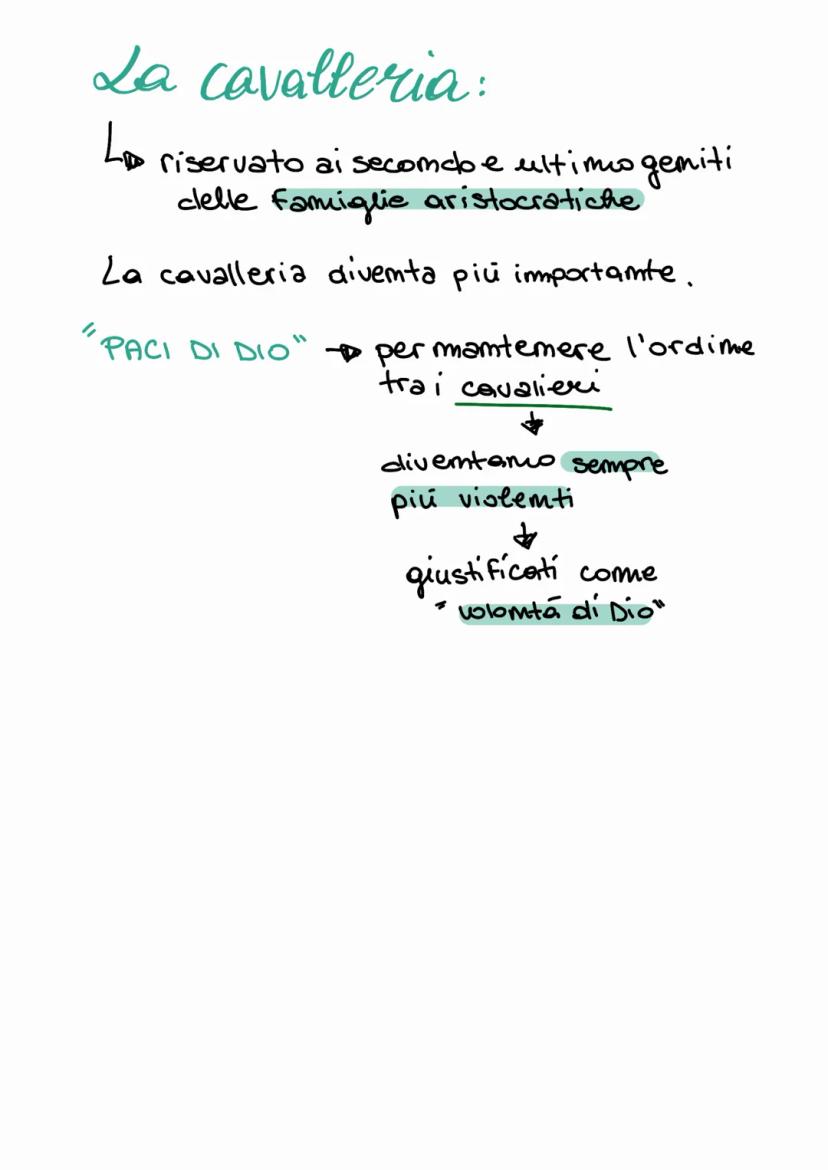 La cavalleria:
riservato ai secondo e ultimo geniti
delle famiglie aristocratiche
La cavalleria diventa più importante.
"PACI DI DIO" → per mantenere l'ordine
tra i cavalieri
↓
diventano sempre
più violenti
↓
giustificati come
"volontà di Dio"